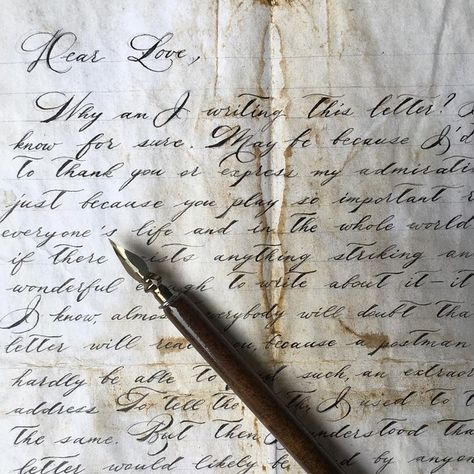 Dear Love,
Why am I writing this letter? I
know for sure. May be because I'd
to thank you or express my admirati
just because you play so important r
everyone's life and in the whole world
if there exists anything striking an
wonderful enough to write about it - it
I know, almost everybody will doubt tha
letter will reach you, because a postman
hardly be able to find such, an extraor
address. To tell the truth, I used to t
the same. But then I understood tha
letter would likely be read by anyon